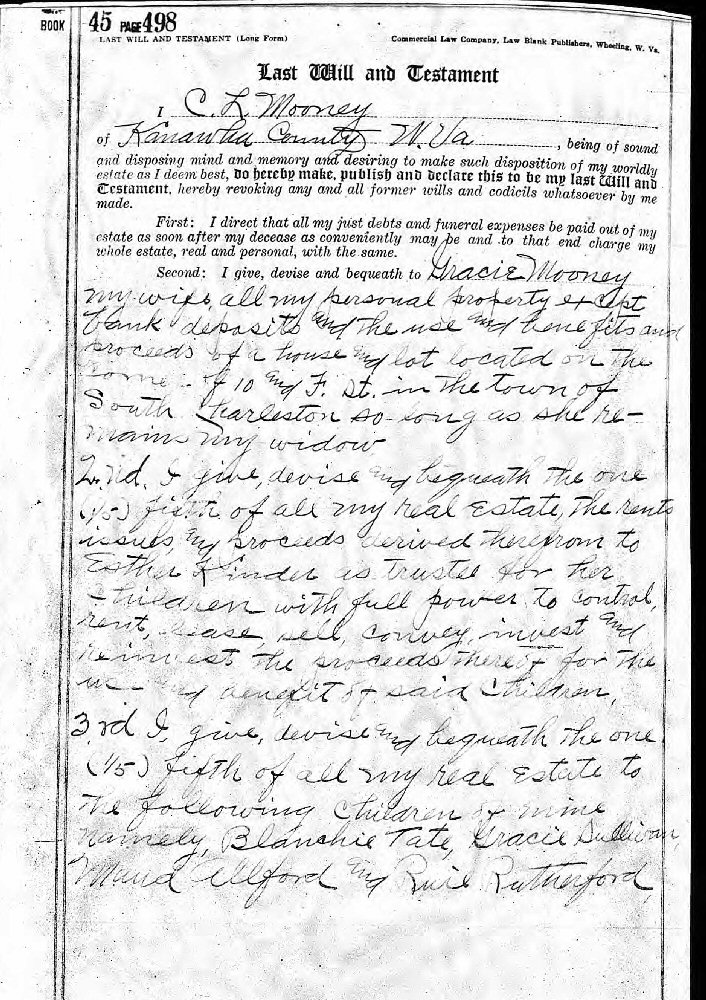 BOOK 45 PAGE 498
LAST WILL AND TESTAMENT (Long Form) Commercial Law Company, Law Blank Publishers, Wheeling, W. Va.
Last Will and Testament
I C. L. Mooney
of Kanawha County W. Va , being of sound
and disposing mind and memory and desiring to make such disposition of my worldly
estate as I deem best, do hereby make, publish and declare this to be my last Will and
Testament, hereby revoking any and all former wills and codicils whatsoever by me
made.
First: I direct that all my just debts and funeral expenses be paid out of my
estate as soon after my decease as conveniently may be and to that end charge my
whole estate, real and personal, with the same.
Second: I give, devise and bequeath to Gracie Mooney
my wife, all my personal property except
bank deposits and the use and benefits and
proceeds of a house and lot located on the
corner of 10 and F. St. in the town of
South Charleston so long as she re-
mains my widow
2.nd. I give, devise and bequeath the one
(1/5) fifth of all my real estate, the rents
issues, and proceeds derived therefrom to
Esther Kinder as trustee for her
children with full power to control,
rent, lease, sell, convey, invest and
reinvest the proceeds thereof for the
use and benefit of said children,
3.rd I, give, devise and bequeath the one
(1/5) fifth of all my real estate to
the following children of mine
namely, Blanchie Tate, Gracie Sullivan,
Maud Allford and Ruie Rutherford,